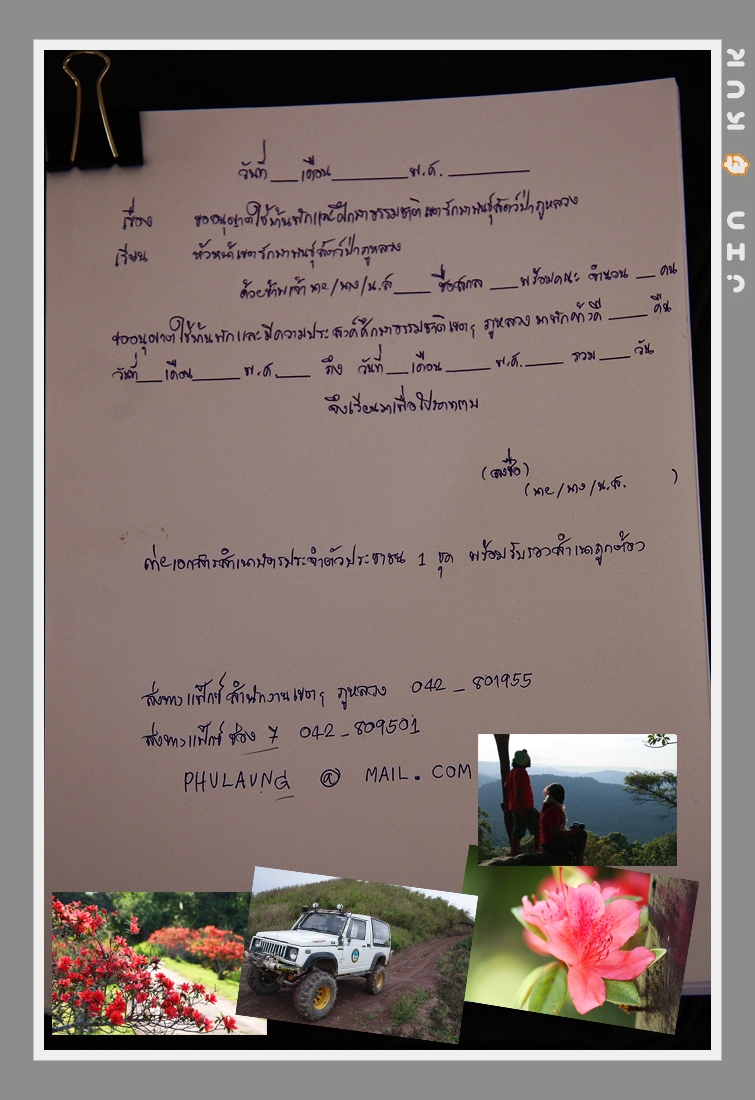 วันที่ ___ เดือน ________ พ.ศ. ________
เรื่อง ขออนุญาตใช้บ้านพักและศึกษาธรรมชาติเขตรักษาพันธุ์สัตว์ป่าภูหลวง
เรียน หัวหน้าเขตรักษาพันธุ์สัตว์ป่าภูหลวง
ด้วยข้าพเจ้า นาย/นาง/น.ส ____ ชื่อสกุล ___ พร้อมคณะ จำนวน __ คน
ขออนุญาตใช้บ้านพักและมีความประสงค์ศึกษาธรรมชาติเขตฯ ภูหลวง มาพักค้างคืน ____ คืน
วันที่ ___ เดือน _____ พ.ศ. ____ ถึง วันที่ ___ เดือน _____ พ.ศ. ____ รวม ___ วัน
จึงเรียนมาเพื่อโปรดทราบ
(ลงชื่อ)
(นาย/นาง/น.ส. )
ถ่ายเอกสารสำเนาบัตรประจำตัวประชาชน 1 ชุด พร้อมรับรองสำเนาถูกต้อง
ส่งทางแฟ็กซ์ สำนักงานเขตฯ ภูหลวง 042 _ 801955
ส่งทางแฟ็กซ์ ช่อง 7 042 _ 809501
PHULAUNG @ MAIL. COM